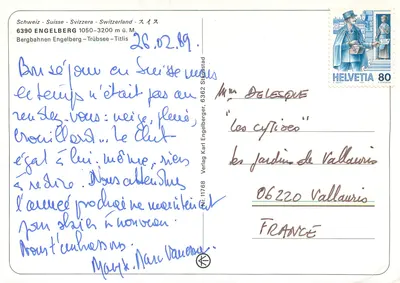 Schweiz - Suisse - Svizzera - Switzerland - スイス
6390 ENGELBERG 1050-3200 m ü. M.
Bergbahnen Engelberg - Trübsee - Titlis
26.02.89.
Bon séjour en Suisse mais
le temps n'était pas au
rendez-vous : neige, pluie,
brouillard... Le Club
égal à lui-même, rien
à redire. Nous attendons
l'année prochaine maintenant
pour skier à nouveau.
Nous t'embrassons.
Marc
Verlag Karl Engelberger, 6362 Stansstad
Nr. 11768
HELVETIA 80
Mme DELESQUE
"Les
Les Jardins de Vallauris
06220 Vallauris
FRANCE